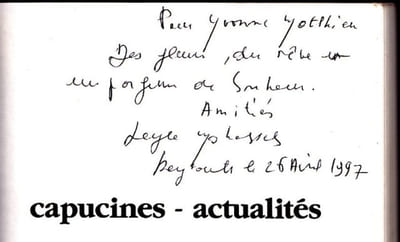 Pour Yvonne Matthieu
Des fleurs, du rêve
un parfum de bonheur.
Amitiés
Leyla
Beyrouth le 26 Avril 1997
capucines - actualités